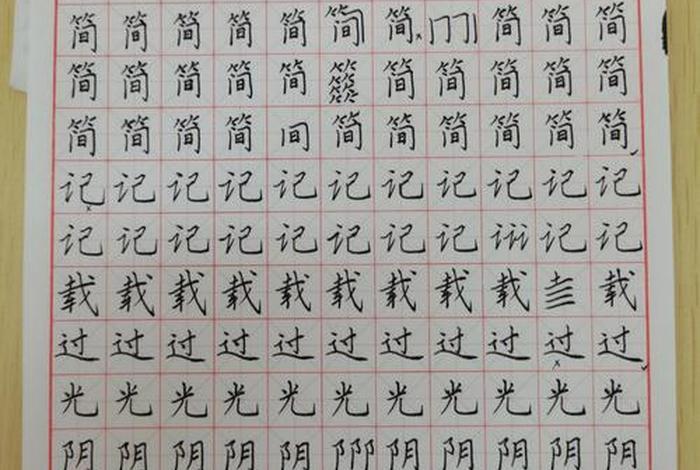 简简简简简简简简简简
简简简简简简简简简简
简简简简间简简简简简简
记记记记记记记记记记记
记记记记记记记记讠讠讠记记
载载载载载载载载载载
过过过过过过过过过过过
光光光光光光光光光光光
阴阴阴阴阴阝阝阝阴阴阴阴阴